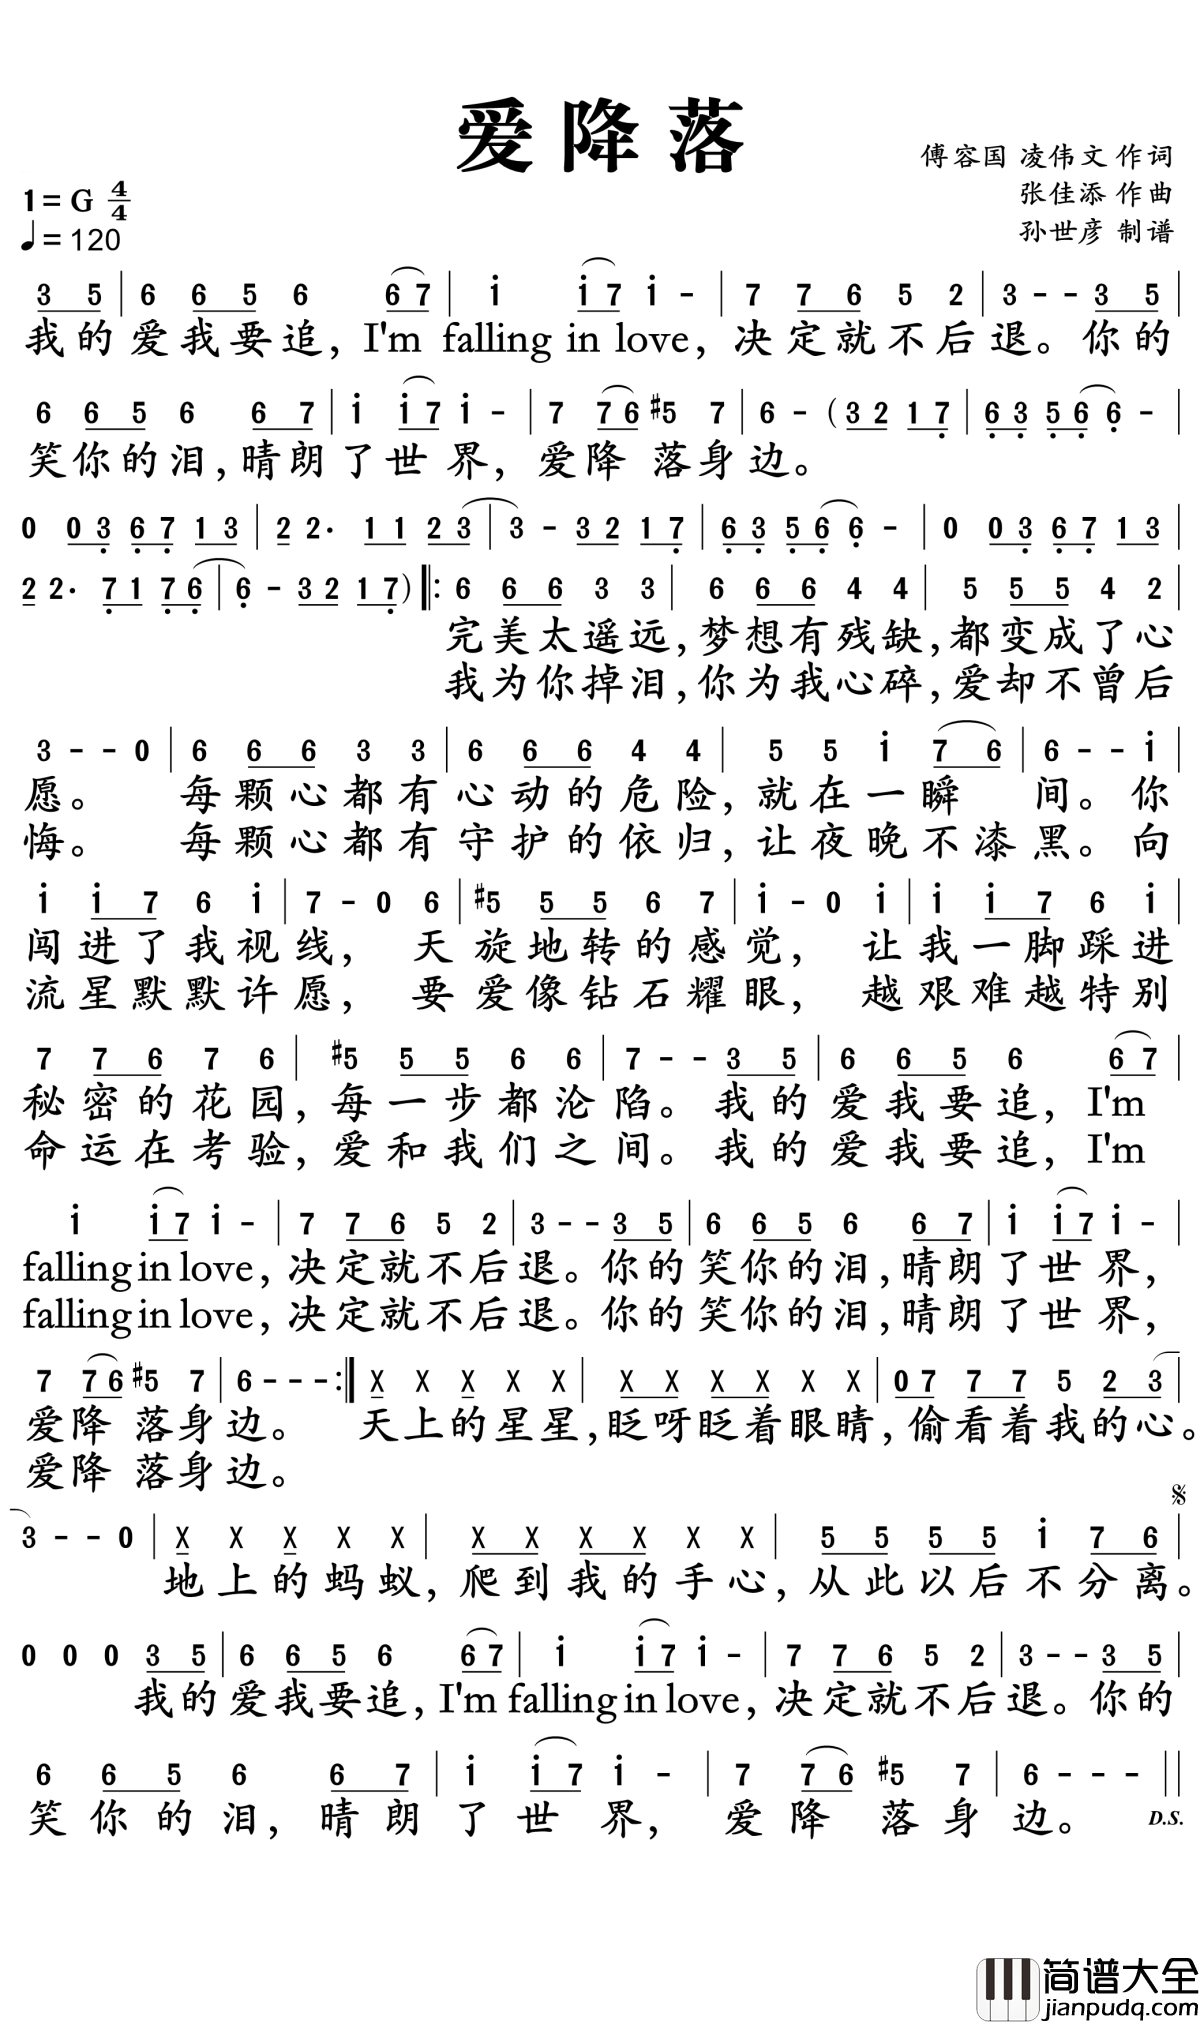 爱降落
傅容国 凌伟文 作词
1=G 4/4
张佳添 作曲
♩=120
孙世彦 制谱
3 5 | 6 6 5 6 6 7 | i i 7 i - | 7 7 6 5 2 | 3 - - 3 5 |
我的爱我要追, I'm falling in love, 决定就不后退。你的
6 6 5 6 6 7 | i i 7 i - | 7 7 6 #5 7 | 6 - (3 2 1 7 | 6 3 5 6 6 - |
笑你的泪,晴朗了世界, 爱降落身边。
0 0 3 6 7 1 3 | 2 2· 1 1 2 3 | 3 - 3 2 1 7 | 6 3 5 6 6 - | 0 0 3 6 7 1 3 |
2 2· 7 1 7 6 | 6 - 3 2 1 7) ‖: 6 6 6 3 3 | 6 6 6 4 4 | 5 5 5 4 2 |
完美太遥远,梦想有残缺,都变成了心
我为你掉泪,你为我心碎,爱却不曾后
3 - - 0 | 6 6 6 3 3 | 6 6 6 4 4 | 5 5 i 7 6 | 6 - - i |
愿。 每颗心都有心动的危险,就在一瞬 间。你
悔。 每颗心都有守护的依归,让夜晚不漆黑。向
i i 7 6 i | 7 - 0 6 | #5 5 5 6 7 | i - 0 i | i i 7 6 i |
闯进了我视线, 天旋地转的感觉, 让我一脚踩进
流星默默许愿, 要爱像钻石耀眼, 越艰难越特别
7 7 6 7 6 | #5 5 5 6 6 | 7 - - 3 5 | 6 6 5 6 6 7 |
秘密的花园,每一步都沦陷。我的爱我要追, I'm
命运在考验,爱和我们之间。我的爱我要追, I'm
i i 7 i - | 7 7 6 5 2 | 3 - - 3 5 | 6 6 5 6 6 7 | i i 7 i - |
falling in love, 决定就不后退。你的笑你的泪,晴朗了世界,
falling in love, 决定就不后退。你的笑你的泪,晴朗了世界,
7 7 6 #5 7 | 6 - - - :‖ X X X X X | X X X X X X | 0 7 7 7 5 2 3 |
爱降落身边。 天上的星星,眨呀眨着眼睛,偷看着我的心。
爱降落身边。
3 - - 0 | X X X X X | X X X X X X | 5 5 5 5 i 7 6 | 𝄋
地上的蚂蚁,爬到我的手心,从此以后不分离。
0 0 0 3 5 | 6 6 5 6 6 7 | i i 7 i - | 7 7 6 5 2 | 3 - - 3 5 |
我的爱我要追, I'm falling in love, 决定就不后退。你的
6 6 5 6 6 7 | i i 7 i - | 7 7 6 #5 7 | 6 - - - ‖
笑你的泪,晴朗了世界, 爱降落身边。 D.S.
简谱大全
jianpudq.com